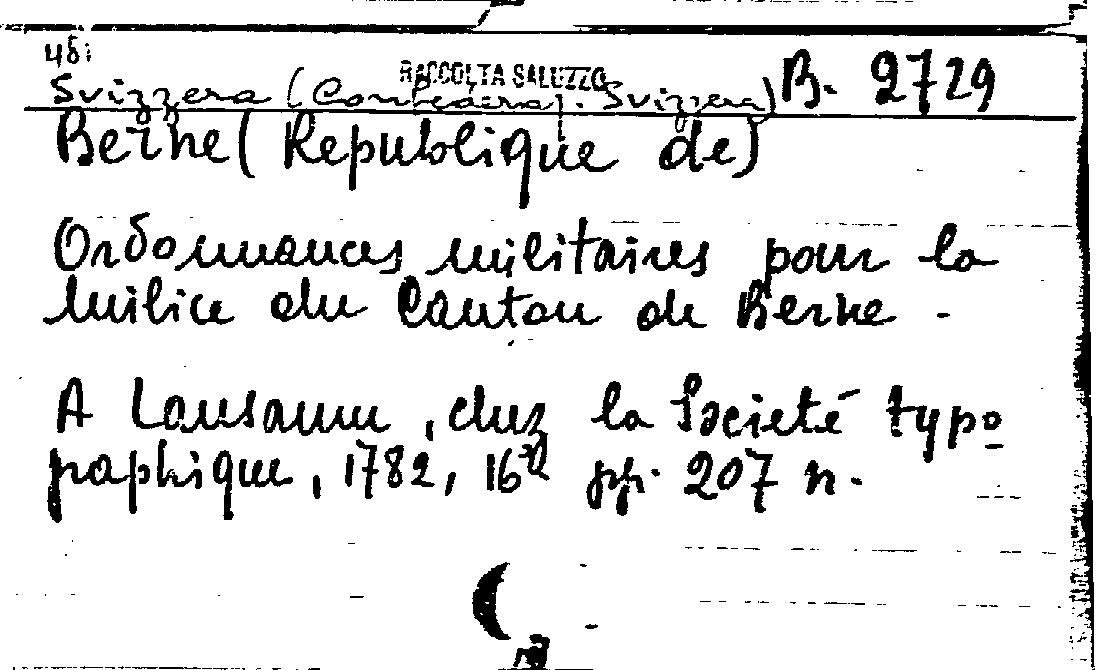 48:
RACCOLTA SALUZZO
Svizzera (Confederaz. Svizzera) B. 2729
Berne (Republique de)
Ordonnances militaires pour la
milice du Canton de Berne -
A Lausanne, chez la Societé typo
graphique, 1782, 16° pp. 207 n.